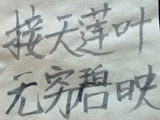 接天莲叶
无穷碧映